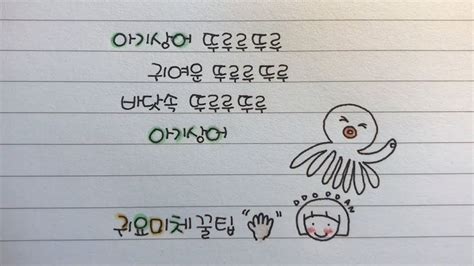 아기상어 뚜루루뚜루
귀여운 뚜루루뚜루
바닷속 뚜루루뚜루
아기상어
DDOODDAN
귀요미체 꿀팁 " "